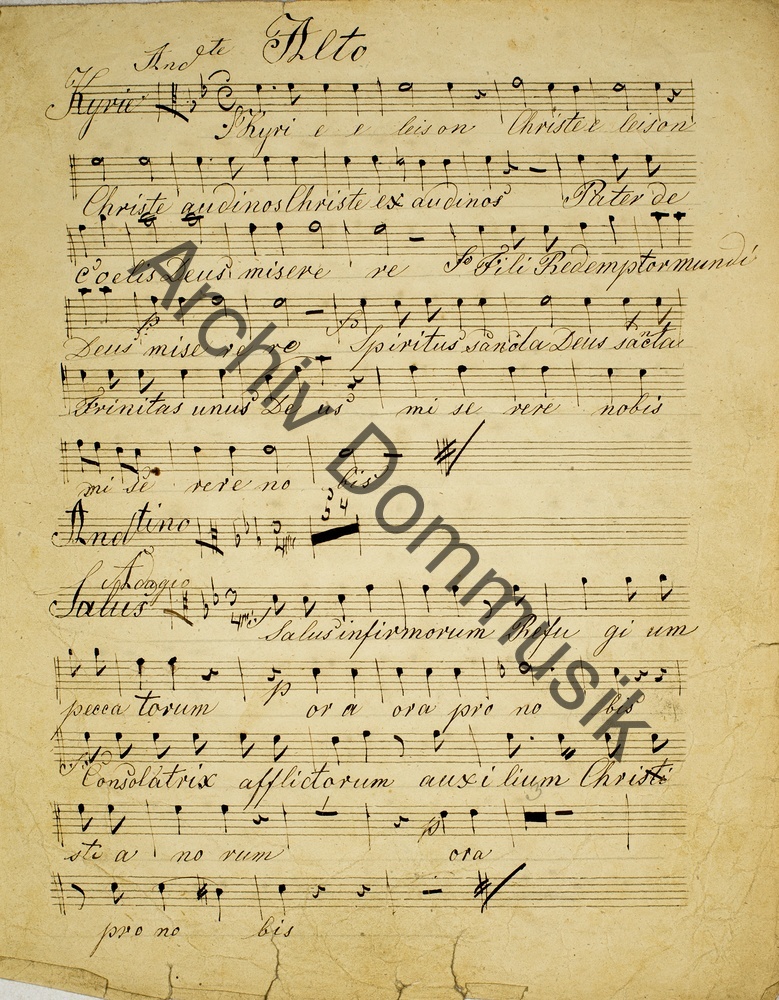 Alto
And te
Kyrie
Kyri e e leison Christe e leison
Christe audinos Christe ex audinos Pater de
Coelis Deus misere re Fili Redemptor mundi
Deus mise re re Spiritus sancta Deus sacta
Trinitas unus De us mi se rere nobis
mi se rere no bis
Andtino
54
Adagio
Salus
Salus infirmorum Refu gi um
pecca torum or a ora pro no bis
Consolatrix afflictorum auxi lium Christi
sti a no rum ora
pro no bis
Archiv Dommusik